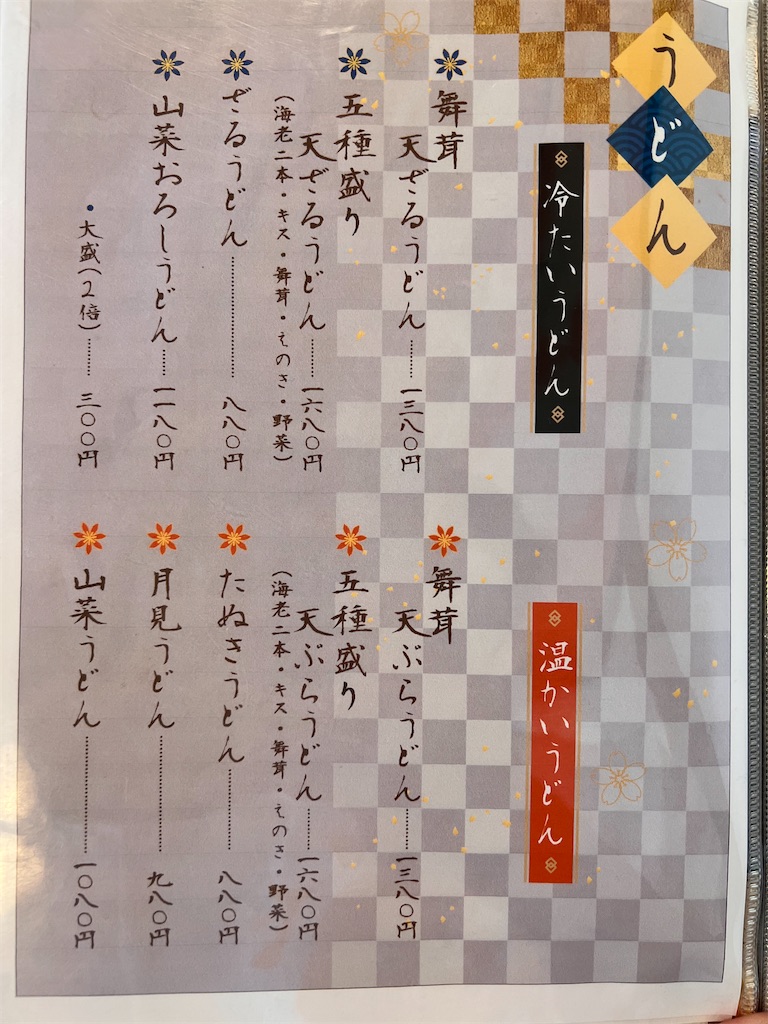 うどん
冷たいうどん
舞茸
天ざるうどん……一三八〇円
五種盛り
天ざるうどん……一六八〇円
(海老二本・キス・舞茸・えのき・野菜)
ざるうどん……八八〇円
山菜おろしうどん……一一八〇円
・大盛(2倍)……三〇〇円
温かいうどん
舞茸
天ぷらうどん……一三八〇円
五種盛り
天ぷらうどん……一六八〇円
(海老二本・キス・舞茸・えのき・野菜)
たぬきうどん……八八〇円
月見うどん……九八〇円
山菜うどん……一〇八〇円